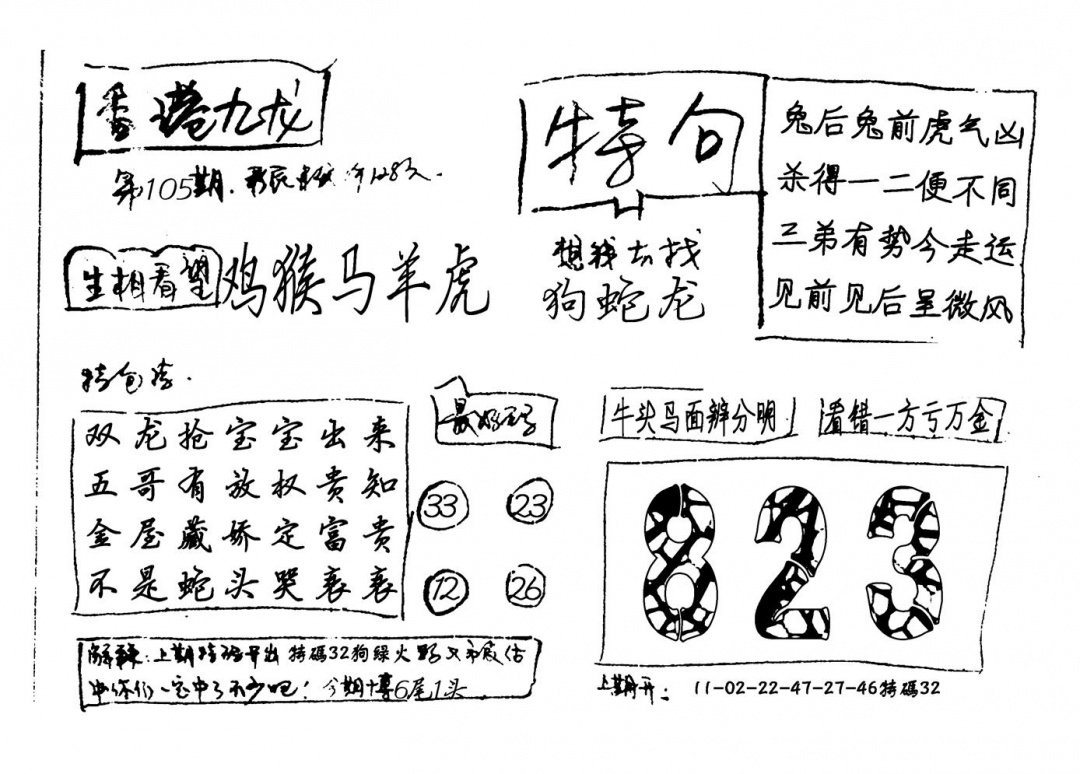 香港九龙
第105期.
特句
兔后兔前虎气凶
杀得一二便不同
三弟有势今走运
见前见后呈微风
生相看望
鸡猴马羊虎
想我去找
狗蛇龙
特包诗.
双龙抢宝宝出来
五哥有放权贵知
金屋藏娇定富贵
不是蛇头哭哀哀
33 23
12 26
牛头马面辨分明
看错一方亏万金
823
解释:上期特码开出特碼32狗绿火
中你们一定中了不少吧! 今期博6尾1头
上期开: 11-02-22-47-27-46特碼32